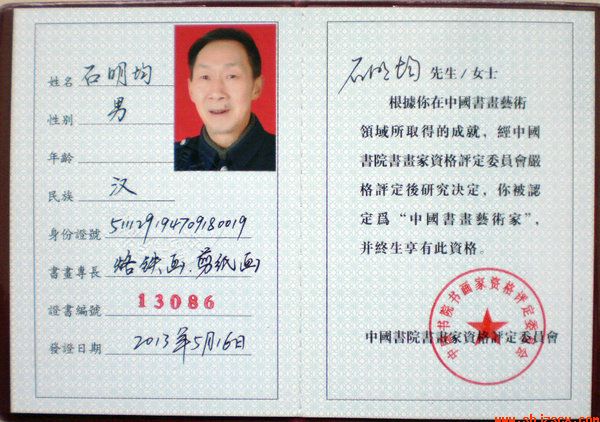 姓名 石明均
性别 男
年齡
民族 汉
身份證號 511129194709180019
書畫專長 烙铁画、剪纸画
證書編號 13086
發證日期 2013年5月16日
石明均 先生/女士
根據你在中國書畫藝術
領域所取得的成就，經中國
書院書畫家資格評定委員會嚴
格評定後研究决定，你被認
定爲“中國書畫藝術家”，
并終生享有此資格。
中國書院書畫家資格評定委員會
中国书院书画家资格评定委员会